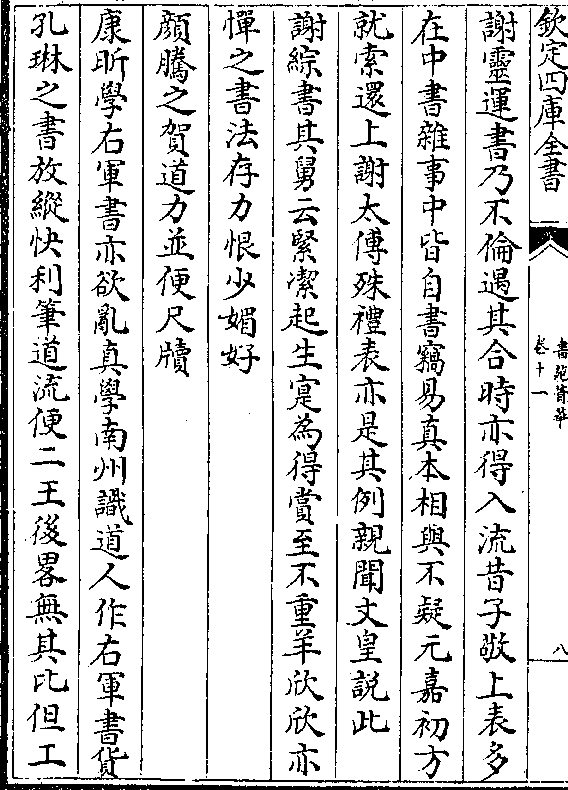 欽定四庫全書
書苑菁華
卷十一
八
謝靈運書乃不倫遇其合時亦得入流昔子敬上表多
在中書雜事中皆自書竊易真本相與不疑元嘉初方
就索還上謝太傅殊禮表亦是其例親聞文皇説此
謝綜書其舅云緊潔起生寔為得賞至不重羊欣欣亦
憚之書法存力恨少媚好
顔騰之賀道力並便尺牘
康昕學右軍書亦欲亂真學南州識道人作右軍書貨
孔琳之書放縱快利筆道流便二王後畧無其比但工